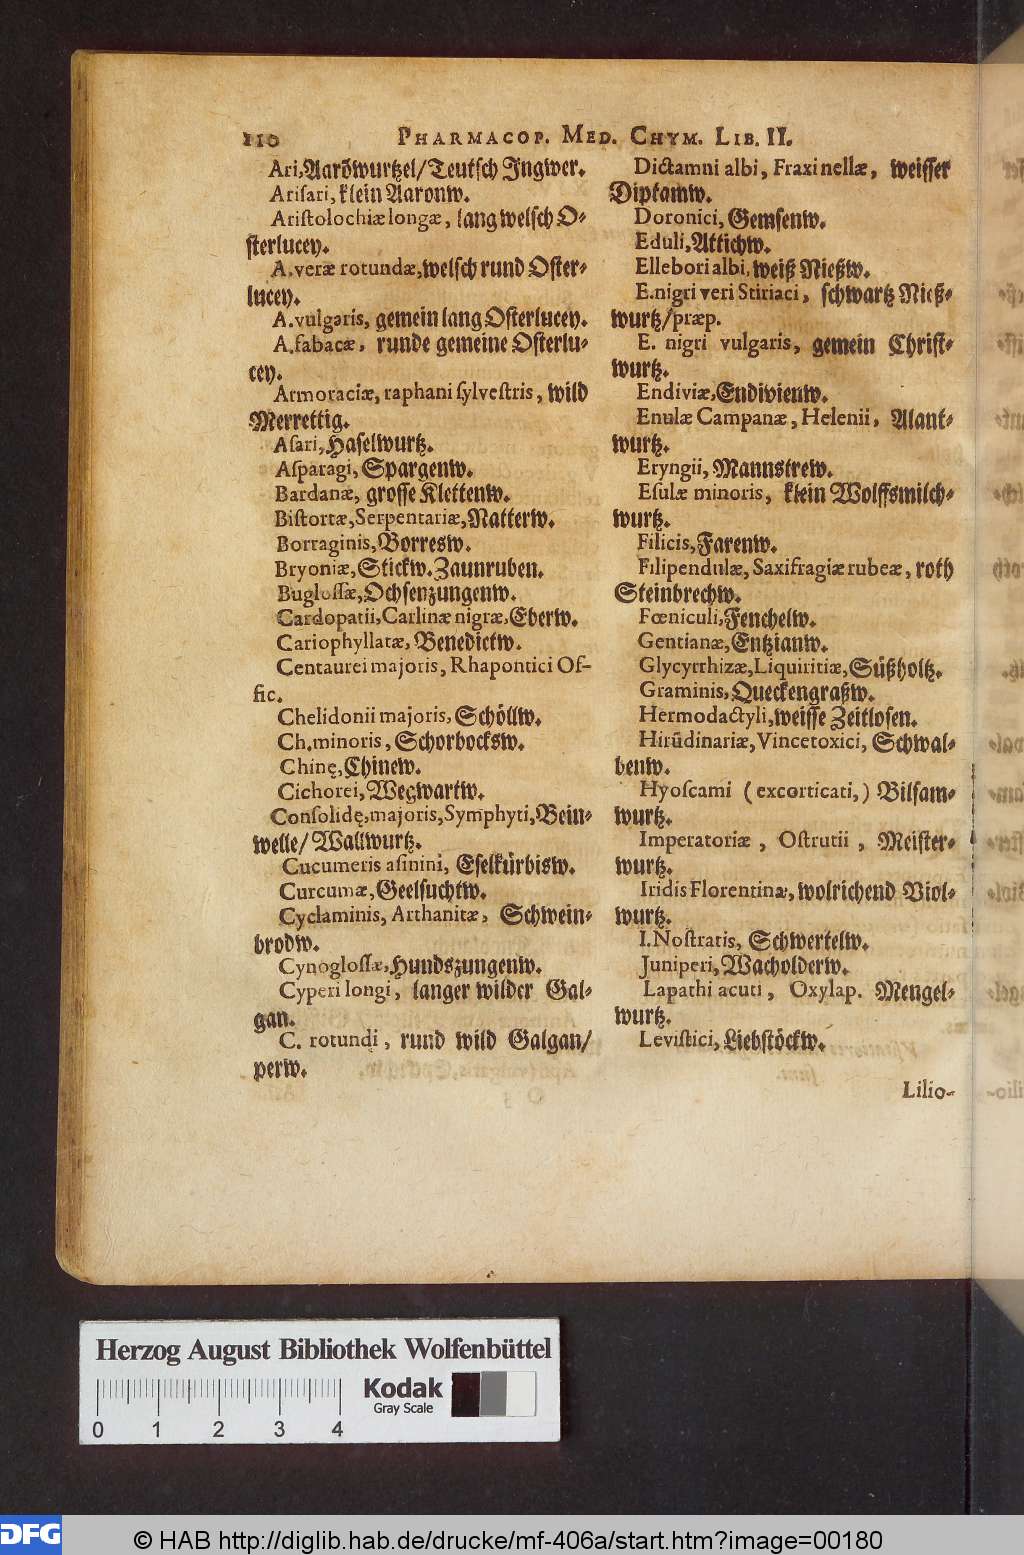 110 PHARMACOP. MED. CHYM. LIB. II.
Ari, Aarōwurtzel/Teutsch Jngwer.
Ariſari, klein Aaronw.
Ariſtolochiæ longæ, lang welsch O-
ſterlucey.
A. veræ rotundæ, welsch rund Oſter-
lucey.
A. vulgaris, gemein lang Oſterlucey.
A. fabacæ, runde gemeine Oſterlu-
cey.
Armoraciæ, raphani ſylveſtris, wild
Merrettig.
Aſari, Haſelwurtz.
Aſparagi, Spargenw.
Bardanæ, groſſe Klettenw.
Biſtortæ, Serpentariæ, Natterw.
Borraginis, Borresw.
Bryoniæ, Stickw. Zaunruben.
Bugloſſæ, Ochſenzungenw.
Cardopatii, Carlinæ nigræ, Eberw.
Cariophyllatæ, Benedictw.
Centaurei majoris, Rhapontici Of-
fic.
Chelidonii majoris, Schöllw.
Ch. minoris, Schorbocksw.
Chinę, Chinew.
Cichorei, Wegwartw.
Conſolidę, majoris, Symphyti, Bein-
welle/Wallwurtz.
Cucumeris aſinini, Eſelkürbisw.
Curcumæ, Geelſuchtw.
Cyclaminis, Arthanitæ, Schwein-
brodw.
Cynogloſſæ, Hundszungenw.
Cyperi longi, langer wilder Gal-
gan.
C. rotundi, rund wild Galgan/
perw.
Dictamni albi, Fraxinellæ, weiſſer
Diptamw.
Doronici, Gemſenw.
Eduli, Attichw.
Ellebori albi, weiß Nießw.
E. nigri veri Stiriaci, ſchwartz Nieß-
wurtz/præp.
E. nigri vulgaris, gemein Chriſt-
wurtz.
Endiviæ, Endivienw.
Enulæ Campanæ, Helenii, Alant-
wurtz.
Eryngii, Mannstrew.
Eſulæ minoris, klein Wolffsmilch-
wurtz.
Filicis, Farenw.
Filipendulæ, Saxifragiæ rubeæ, roth
Steinbrechw.
Fœniculi, Fenchelw.
Gentianæ, Entzianw.
Glycyrrhizæ, Liquiritiæ, Süßholtz.
Graminis, Queckengraßw.
Hermodactyli, weiſſe Zeitloſen.
Hirūdinariæ, Vincetoxici, Schwal-
benw.
Hyoſcami (excorticati,) Bilſam-
wurtz.
Imperatoriæ, Oſtrutii, Meiſter-
wurtz.
Iridis Florentinæ, wolriechend Viol-
wurtz.
I. Noſtratis, Schwertelw.
Juniperi, Wacholderw.
Lapathi acuti, Oxylap. Mengel-
wurtz.
Leviſtici, Liebſtöckw.
Lilio-
Herzog August Bibliothek Wolfenbüttel
Kodak
Gray Scale
0 1 2 3 4
DFG
© HAB http://diglib.hab.de/drucke/mf-406a/start.htm?image=00180